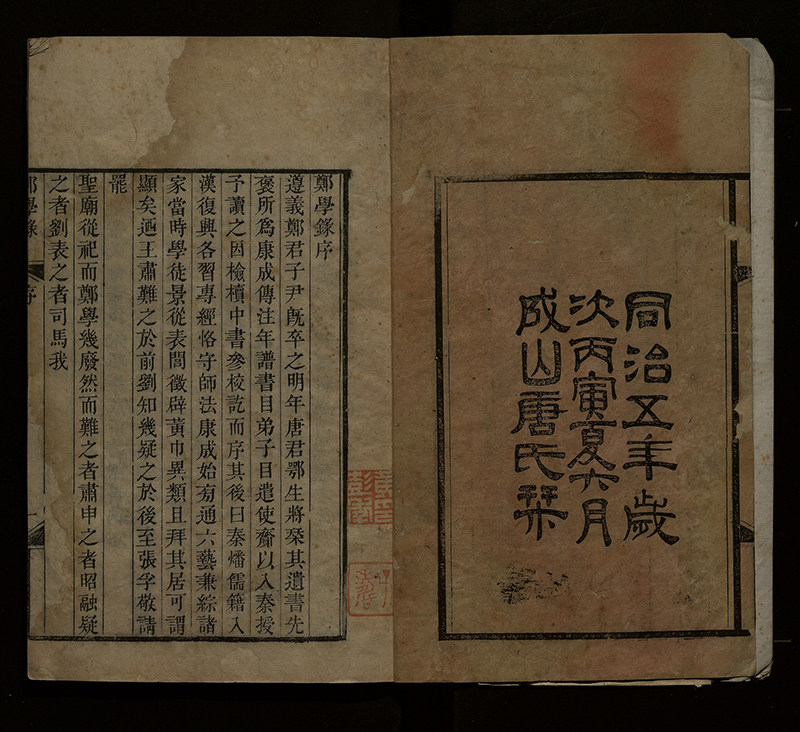 同治五年歲
次丙寅夏六月
成山唐氏栞
鄭學錄序
遵義鄭君子尹旣卒之明年唐君鄂生將栞其遺書先
褒所爲康成傳注年譜書目弟子目遣使齎以入秦授
予讀之因檢櫝中書參校訖而序其後曰秦燔儒籍入
漢復興各習專經恪守師法康成始㫄通六藝兼綜諸
家當時學徒景從表閭徵辟黃巾異類且拜其居可謂
顯矣迺王肅難之於前劉知幾疑之於後至張孚敬請
罷
聖廟從祀而鄭學幾廢然而難之者肅申之者昭融疑
之者劉表之者司馬我
鄭學錄
序
一